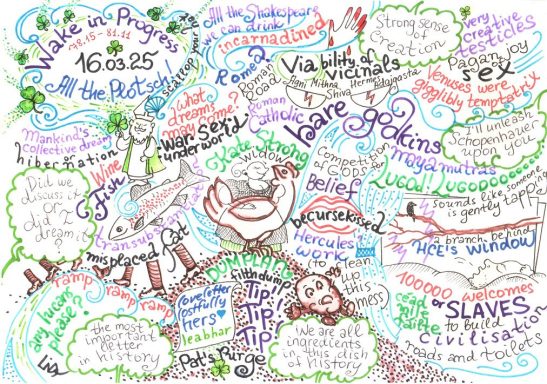 Wake in Progress
78.15 - 81.11
16.03.25
All the Plotsch!
scallop your
All the Shakespeare
we can drink
incarnadined
Roman
Roman
Roads
Roman
Catholic
What
dreams
may come?
War Sexil
underworld
Mankind's
collective dream
hibernation
Wine
Fish
Did we
discuss it
or
did I
dream it?
misplaced fat
Viability of
vicinals
Agni Mithra
Shiva
Strong sense
of
Creation
very
creative
testicles
Pagan joy
sex
Venuses were
gigglibly temptatrix
I'll unleash
Schopenhauer
upon you
hare godkins
mayamutras
Lugod! Lugodoo
Kate Strong
widow
competition
of Gods for
Belief
becursekissed
Hercules
work
(to
lean
up this
mess)
Sounds like someone
is gently tapping
a branch behind
HCE's window
100000 welcomes
cead
mile
failte
or SLAVES
to build
Civilisation
roads and toilets
DUMPLAND
filthdump
Tip!!
Tip!!
Tip!
tramp ramp ramp
any human
please?
Lisa
the most
important
letter
in history
loveletter
lostfully
hers
leabhar
Pat's Purge
We are all
ingredients
in this dish
of history